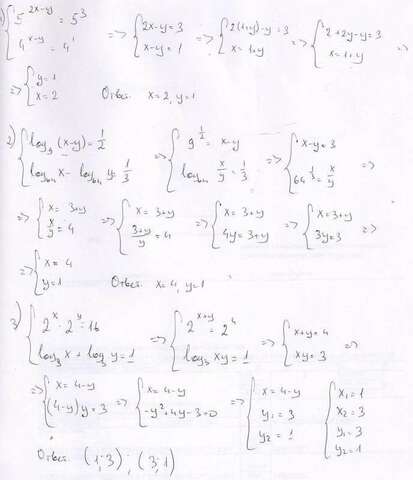 1) { 5^{2x-y} = 5^3 ; 4^{x-y} = 4^1 => { 2x-y=3 ; x-y=1 => { 2(1+y)-y=3 ; x=1+y => { 2+2y-y=3 ; x=1+y =>
=> { y=1 ; x=2 Ответ. x=2, y=1
2) { log_9 (x-y)=1/2 ; log_64 x - log_64 y=1/3 => { 9^{1/2} = x-y ; log_64 x/y=1/3 => { x-y=3 ; 64^{1/3}=x/y =>
=> { x= 3+y ; x/y = 4 => { x= 3+y ; (3+y)/y = 4 => { x=3+y ; 4y=3+y => { x=3+y ; 3y=3 =>
=> { x= 4 ; y=1 Ответ x=4, y=1
3) { 2^x · 2^y=16 ; log_3 x + log_3 y=1 => { 2^{x+y} = 2^4 ; log_3 xy=1 => { x+y=4 ; xy=3 =>
=> { x=4-y ; (4-y)y=3 => { x=4-y ; -y^2+4y-3=0 => { x=4-y ; y_1=3 ; y_2=1 { x_1=1 ; x_2=3 ; y_1=3 ; y_2=1
Ответ. (1;3); (3;1)